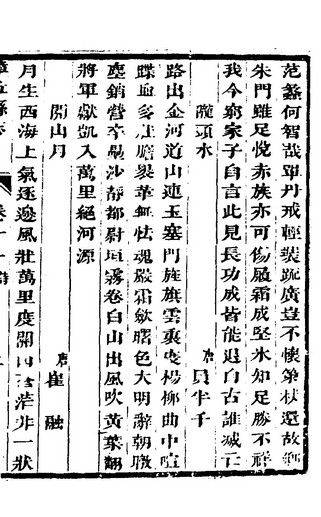 范蠡何智哉單丹戒輕裝疏廣豈不懷策杖還故鄉
朱門雖足悅赤族亦可傷履霜成堅冰知足勝不祥
我今窮家子自言此見長功成皆能退自古誰滅亡
隴頭水 唐 員半千
路出金河道山連玉塞門旌旗雲裏度楊柳曲中喧
蹀血多壯膽裹革無怯魂嚴霜歛曙色大明辭朝暾
塵銷營亭壘沙靜都尉垣霧卷白山出風吹黃葉翻
將軍獻凱入萬里絕河源
關山月 唐 崔融
月生西海上氣逐邊風壯萬里度關山蒼茫非一狀